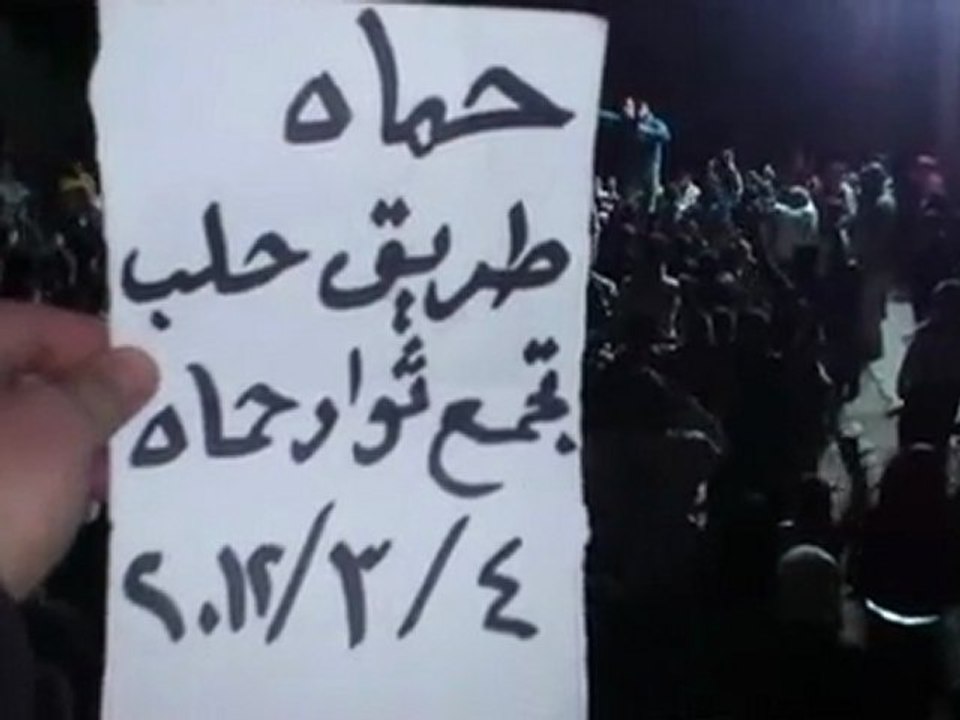 حماه
طريق حلب
تجمع ثوار حماه
٤/٣/٢٠١٢